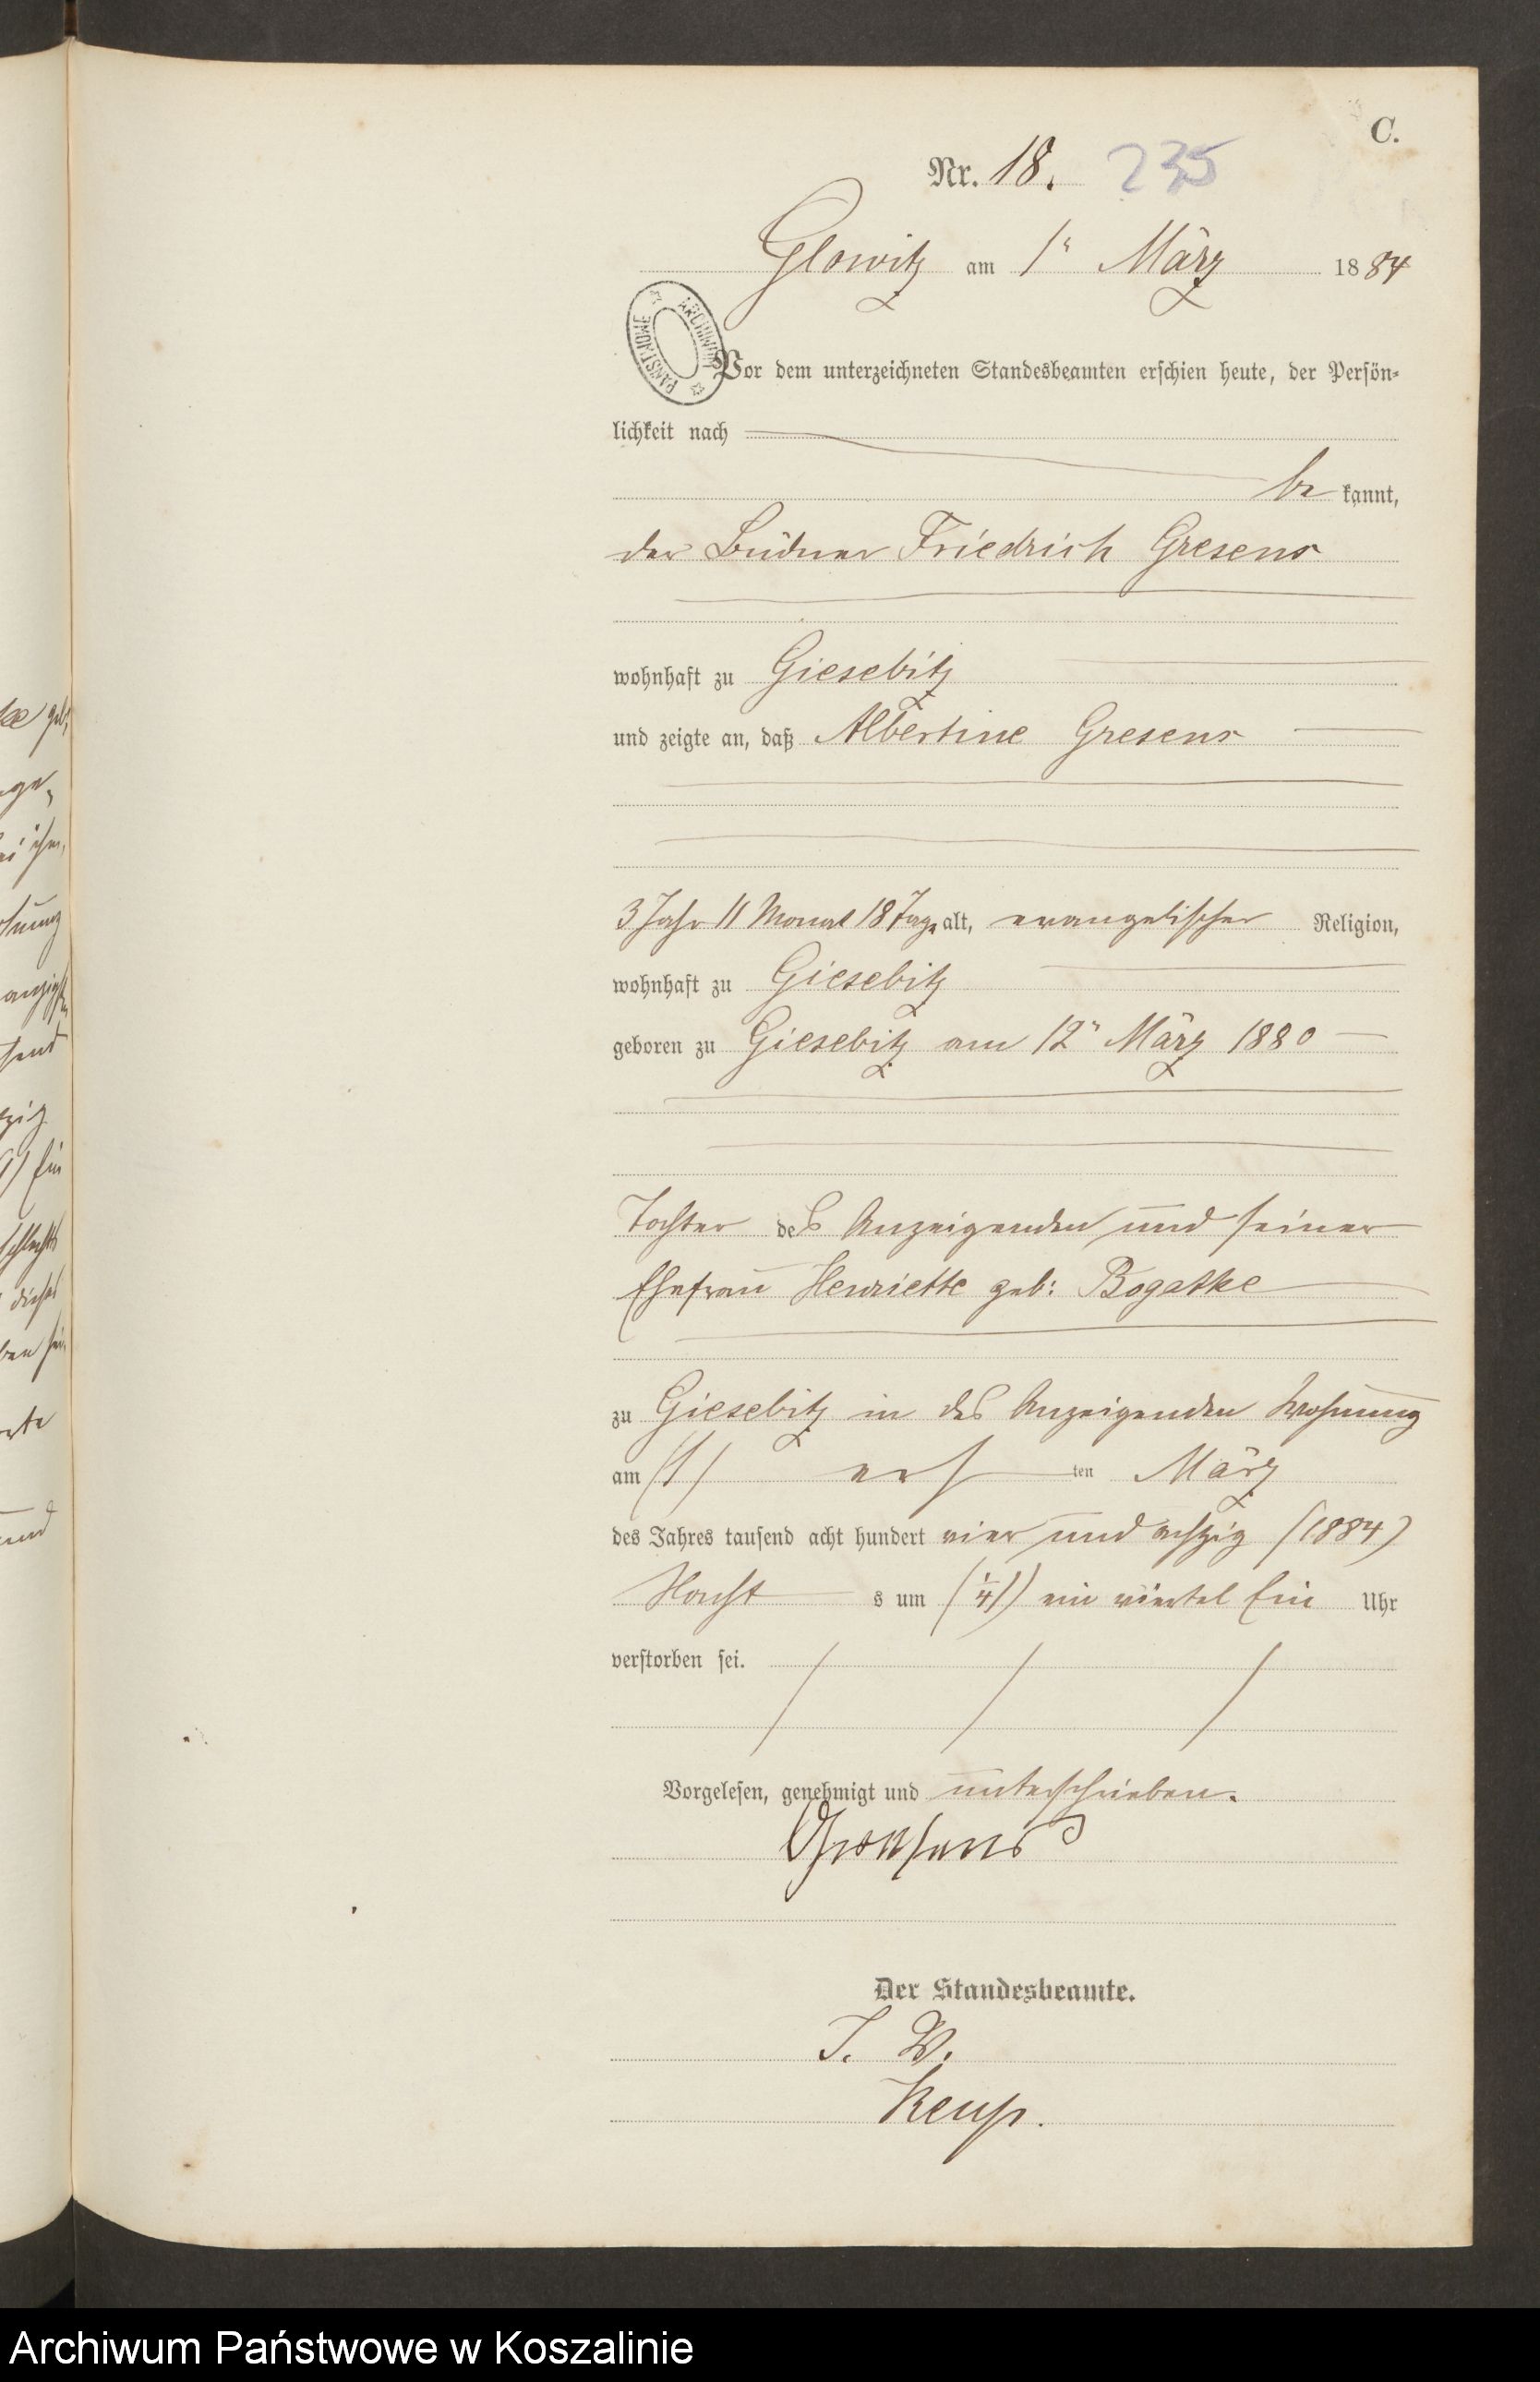 C.
Nr. 18. 235
Glowitz am 1" März 1884
ARCHIWUM PAŃSTWOWE
Vor dem unterzeichneten Standesbeamten erschien heute, der Persön-
lichkeit nach
be kannt,
der Büdner Friedrich Gresens
wohnhaft zu Giesebitz
und zeigte an, daß Albertine Gresens
3 Jahr 11 Monat 18 Tage alt, evangelischer Religion,
wohnhaft zu Giesebitz
geboren zu Giesebitz am 12" März 1880
Tochter des Anzeigenden und seiner
Ehefrau Henriette geb: Bogatke
zu Giesebitz in des Anzeigenden Wohnung
am (1) ers ten März
des Jahres tausend acht hundert vier und achtzig (1884)
Nacht s um (1/4 1) ein viertel Ein Uhr
verstorben sei.
Vorgelesen, genehmigt und unterschrieben.
Der Standesbeamte.
J. V.
Keup.
Archiwum Państwowe w Koszalinie